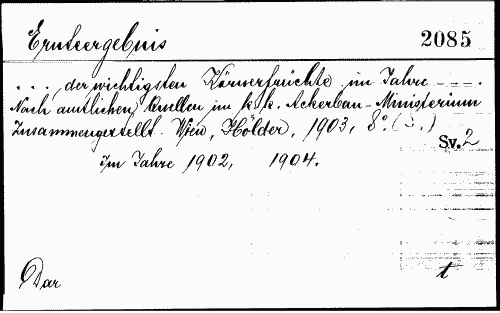 Ernteergebnis 2085
... der wichtigsten Körnerfrüchte im Jahre .....
Nach amtlichen Quellen im k. k. Ackerbau-Ministerium
Zusammengestellt. Wien, Hölder, 1903, 8° (S.)
Sv. 2
Im Jahre 1902, 1904.
Dar t